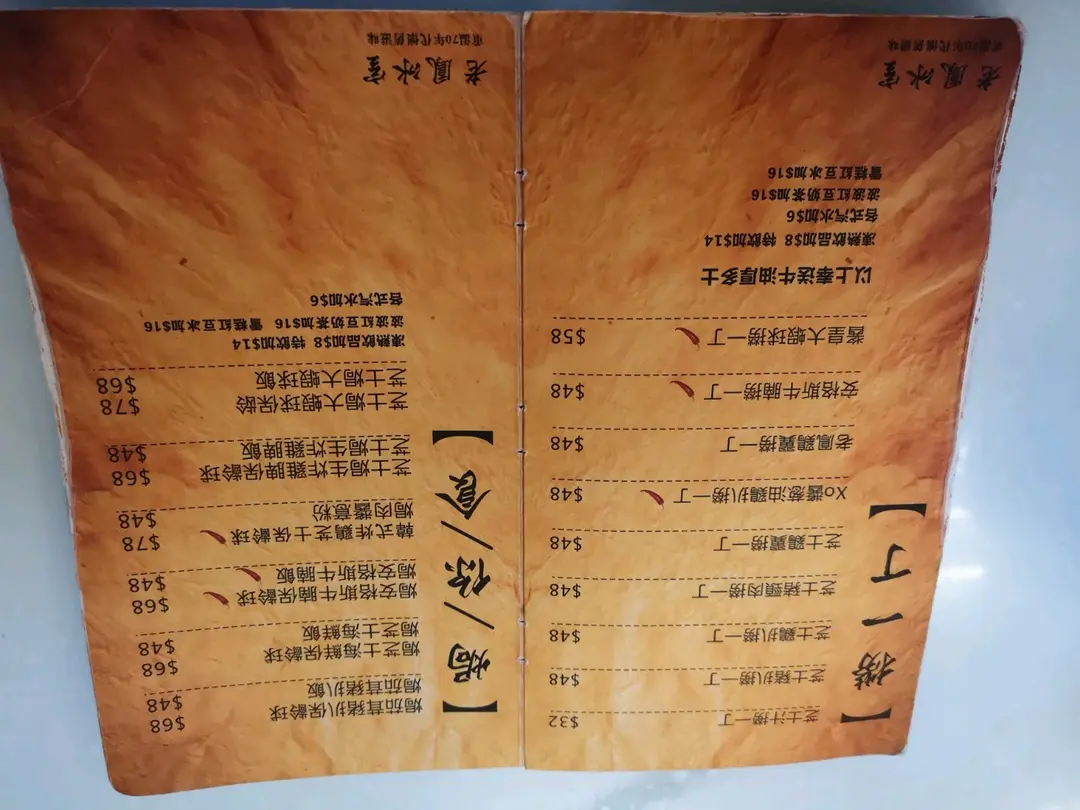 【撈一丁】
芝士汁撈一丁 $32
芝士豬扒撈一丁 $48
芝士鷄扒撈一丁 $48
芝士豬頸肉撈一丁 $48
芝士鷄翼撈一丁 $48
Xo醬葱油鷄扒撈一丁 $48
老鳳鷄翼撈一丁 $48
安格斯牛腩撈一丁 $48
醬皇大蝦球撈一丁 $58
以上奉送牛油厚多士
凍熱飲品加$8 特飲加$14
各式汽水加$6
波波紅豆奶茶加$16
雪糕紅豆冰加$16
老鳳冰室
重温70年代懷舊滋味
【焗/你/食】
焗茄茸豬扒保齡球 $68
焗茄茸豬扒飯 $48
焗芝士海鮮保齡球 $68
焗芝士海鮮飯 $48
焗安格斯牛腩保齡球 $68
焗安格斯牛腩飯 $48
韓式炸鷄芝士保齡球 $78
焗肉醬意粉 $48
芝士焗生炸雞脾保齡球 $68
芝士焗生炸雞脾飯 $48
芝士焗大蝦球保齡 $78
芝士焗大蝦球飯 $68
凍熱飲品加$8 特飲加$14
波波紅豆奶茶加$16 雪糕紅豆冰加$16
各式汽水加$6
老鳳冰室
重温70年代懷舊滋味